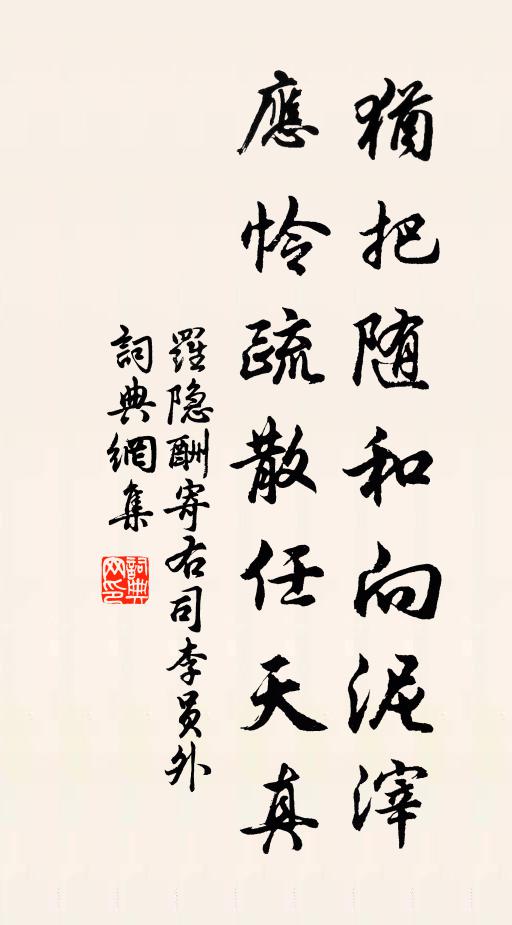 猶把随和向泥滓
應怜疏散任天真
羅隐酬寄右司李員外
詞典網集
詞典網印